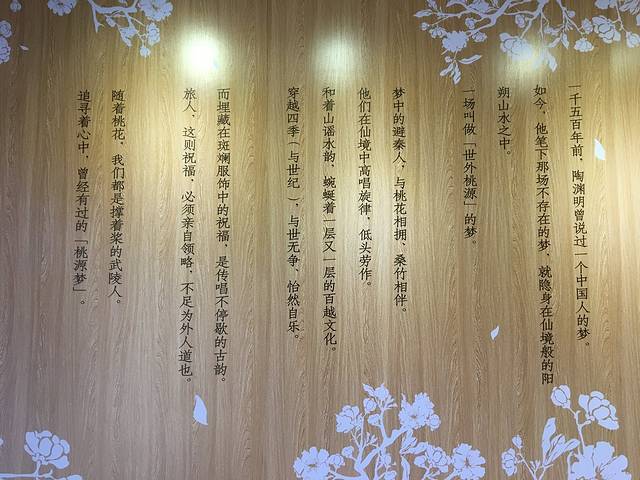 一千五百年前，陶渊明曾说过一个中国人的梦。
如今，他笔下那场不存在的梦，就隐身在仙境般的阳
朔山水之中。
一场叫做「世外桃源」的梦。
梦中的避秦人，与桃花相拥、桑竹相伴。
他们在仙境中高唱旋律，低头劳作。
和着山谣水韵，蜿蜒着一层又一层的百越文化。
穿越四季（与世纪），与世无争、怡然自乐。
而埋藏在斑斓服饰中的祝福，是传唱不停歇的古韵。
旅人，这则祝福，必须亲自领略，不足为外人道也。
随着桃花，我们都是撑着桨的武陵人。
追寻着心中，曾经有过的「桃源梦」。